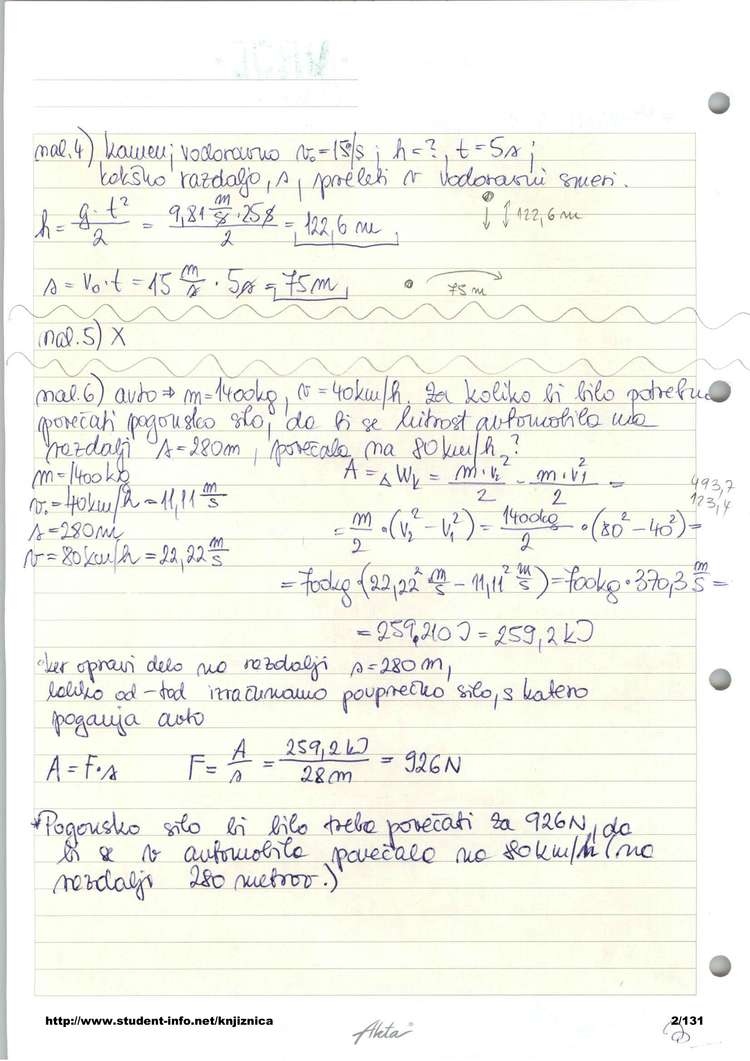 nal.4) kamen; vodoravno v₀=15/s ; h=?, t=5s ;
kakšno razdaljo, s, preleti v vodoravni smeri.
h = g·t²/2 = 9,81 m/s · 25s / 2 = 122,6 m
122,6 m
s = v₀·t = 15 m/s · 5s = 75m
75 m
nal.5) X
nal.6) avto ⇒ m=1400kg, v=40km/h. Za koliko bi bilo potrebno
povečati pogonsko silo, da bi se hitrost avtomobila na
razdalji s=280m, povečala na 80km/h?
m=1400kg
A = ΔWk = m·v₂²/2 - m·v₁²/2 =
493,7
123,4
v₀=40km/h=11,11 m/s
s=280m
= m/2 · (v₂² - v₁²) = 1400kg/2 · (80² - 40²) =
v=80km/h=22,22 m/s
= 700kg · (22,22² m/s - 11,11² m/s) = 700kg · 370,3 m/s =
= 259.210J = 259,2kJ
ker opravi delo na razdalji s=280m,
lahko od-tod izračunamo povprečno silo, s katero
poganja avto
A = F·s F = A/s = 259,2kJ/28m = 926N
*Pogonsko silo bi bilo treba povečati za 926N, da
bi se v avtomobila povečala na 80km/h (na
razdalji 280 metrov.)
http://www.student-info.net/knjiznica
Akta
2/131